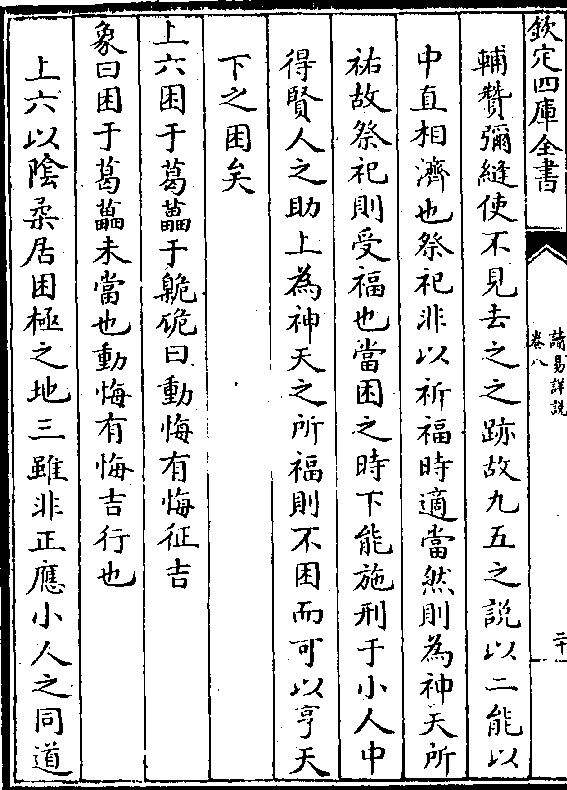 欽定四庫全書
讀易詳說
卷八
二十
輔贊彌縫使不見去之之跡故九五之說以二能以
中直相濟也祭祀非以祈福時適當然則為神天所
祐故祭祀則受福也當困之時下能施刑于小人中
得賢人之助上為神天之所福則不困而可以亨天
下之困矣
上六困于葛藟于臲卼曰動悔有悔征吉
象曰困于葛藟未當也動悔有悔吉行也
上六以陰柔居困極之地三雖非正應小人之同道